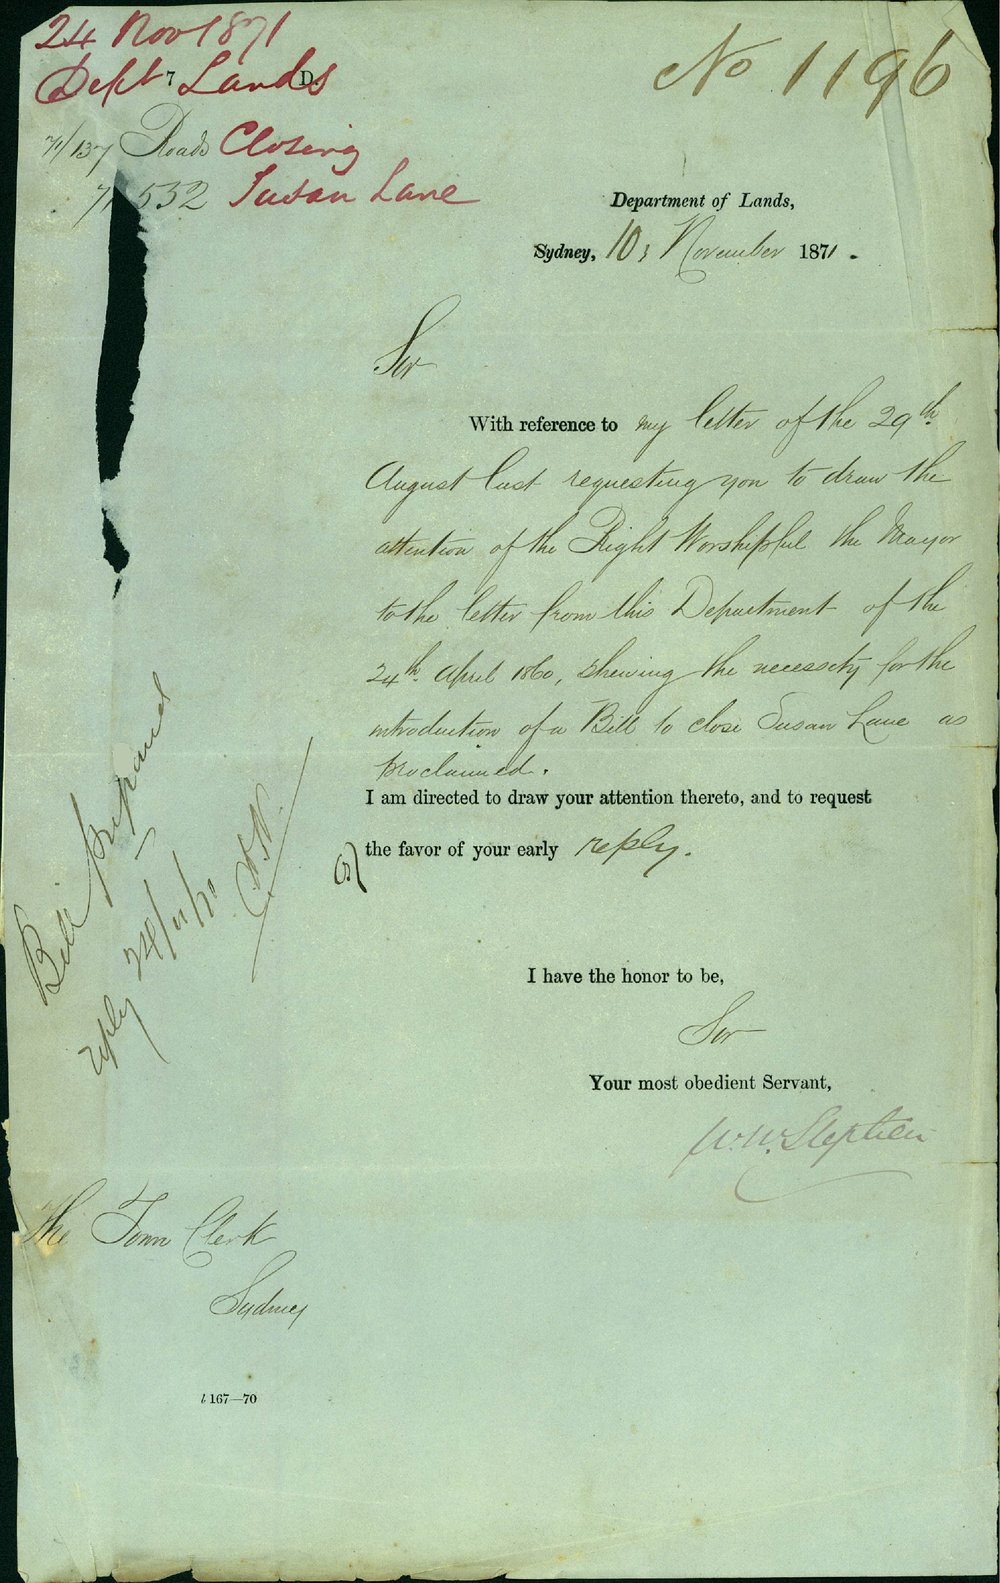 24 Nov 1871
Dept 7 Lands D.
71/137 Roads Closing
71 532 Susan Lane
No 1196
Department of Lands,
Sydney, 10, November 1871.
Sir
With reference to my letter of the 29th
August last requesting you to draw the
attention of the Right Worshipful the Mayor
to the letter from this Department of the
24th April 1860, shewing the necessity for the
introduction of a Bill to close Susan Lane as
proclaimed.
I am directed to draw your attention thereto, and to request
the favor of your early reply.
Bill prepared
reply 24/11/71
I have the honor to be,
Sir
Your most obedient Servant,
W.W. Stephen
The Town Clerk
Sydney
l 167—70